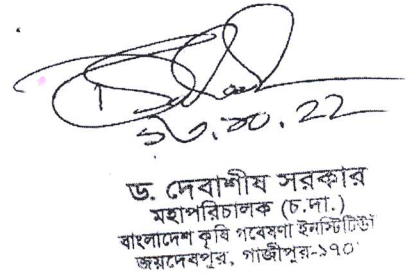 ১৬.১০.22
ড. দেবাশীষ সরকার
মহাপরিচালক (চ.দা.)
বাংলাদেশ কৃষি গবেষণা ইনস্টিটিউট
জয়দেবপুর, গাজীপুর-১৭০